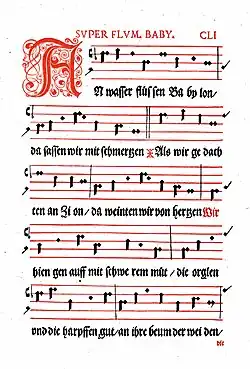 SVPER FLVM. BABY. CLI
AN wasser flüssen Ba by lon/
da sassen wir mit schmertzen ⁎ Als wir ge dach
ten an Zi on/ da weinten wir von hertzen Wir
hien gen auff mit schwe rem müt/ die orglen
vnd die harpffen gut/ an ihre beum der wei den/
die